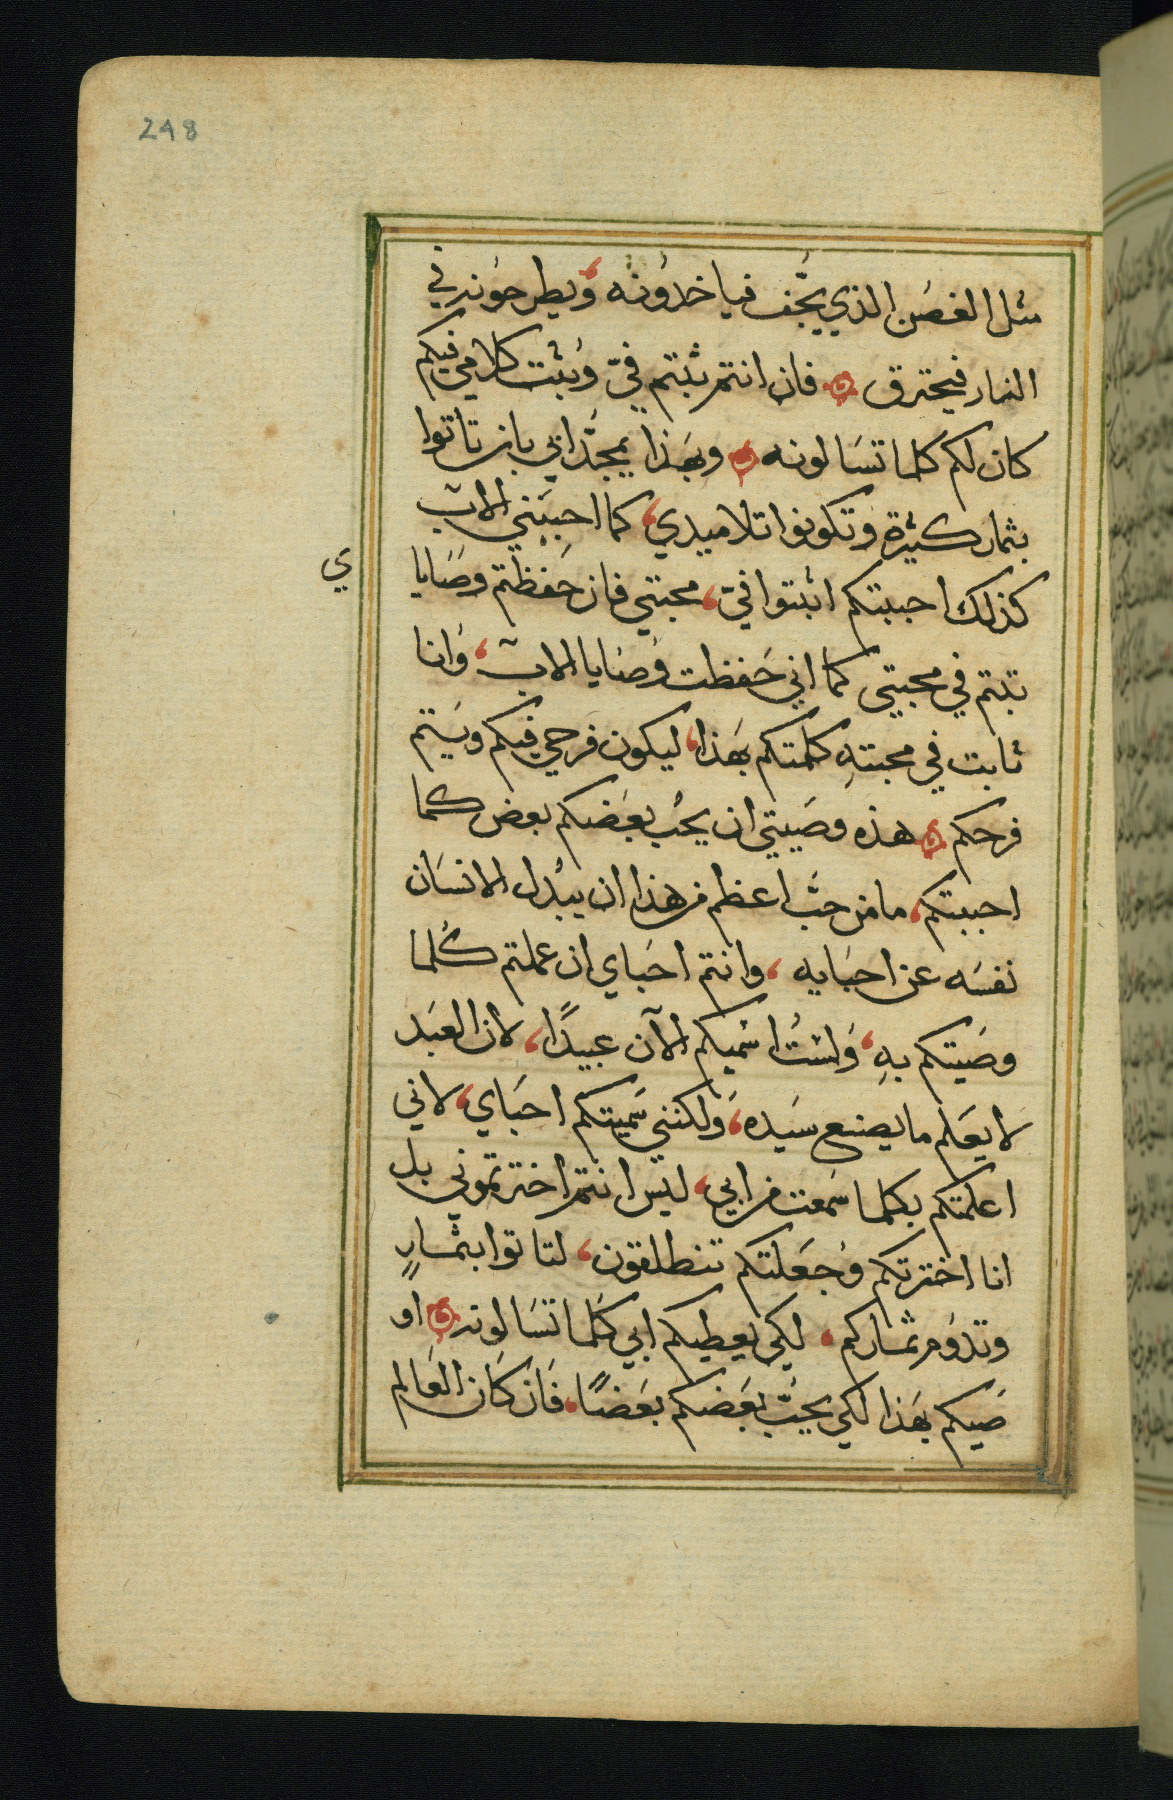 248
مثل الغصن الذي يجّف فياخدونه ويطرحونه في
النار فيحترق فان انتم ثبتم فيّ وثبت كلامي فيكم
كان لكم كلما تسالونه وبهذا يمجّد ابي بان تاتوا
بثمار كثيرة وتكونوا تلاميدي، كما احببني الاب
ي
كذلك احببتكم اثبتوا في، محبتي فان حفظتم وصايا
ثبتم في محبتي كما اني حفظت وصايا الاب، وانا
ثابت في محبتهِ كلمتكم بهذا، ليكون فرحي فيكم ويتم
فرحكم هذه وصيتي ان يحب بعضكم بعض كما
احببتكم، ما من حبّ اعظم من هذا ان يبدل الانسان
نفسه عن احبايه، وانتم احباي ان عملتم كُلما
وصيتكم بهِ، ولستُ اسميكم الآن عبيدًا، لان العبد
لا يعلم ما يصنع سيده، ولكنني سميتكم احباي، لاني
اعلمتكم بكلما سمعت من ابي، ليس انتم اخترتموني بل
انا اخترتكم وجعلتكم تنطلقون، لتاتوا بثمارٍ
وتدوم ثماركم، لكي يعطيكم ابي كلما تسالونه او
صيكم بهذا لكي يحبّ بعضكم بعضًا، فان كان العالم